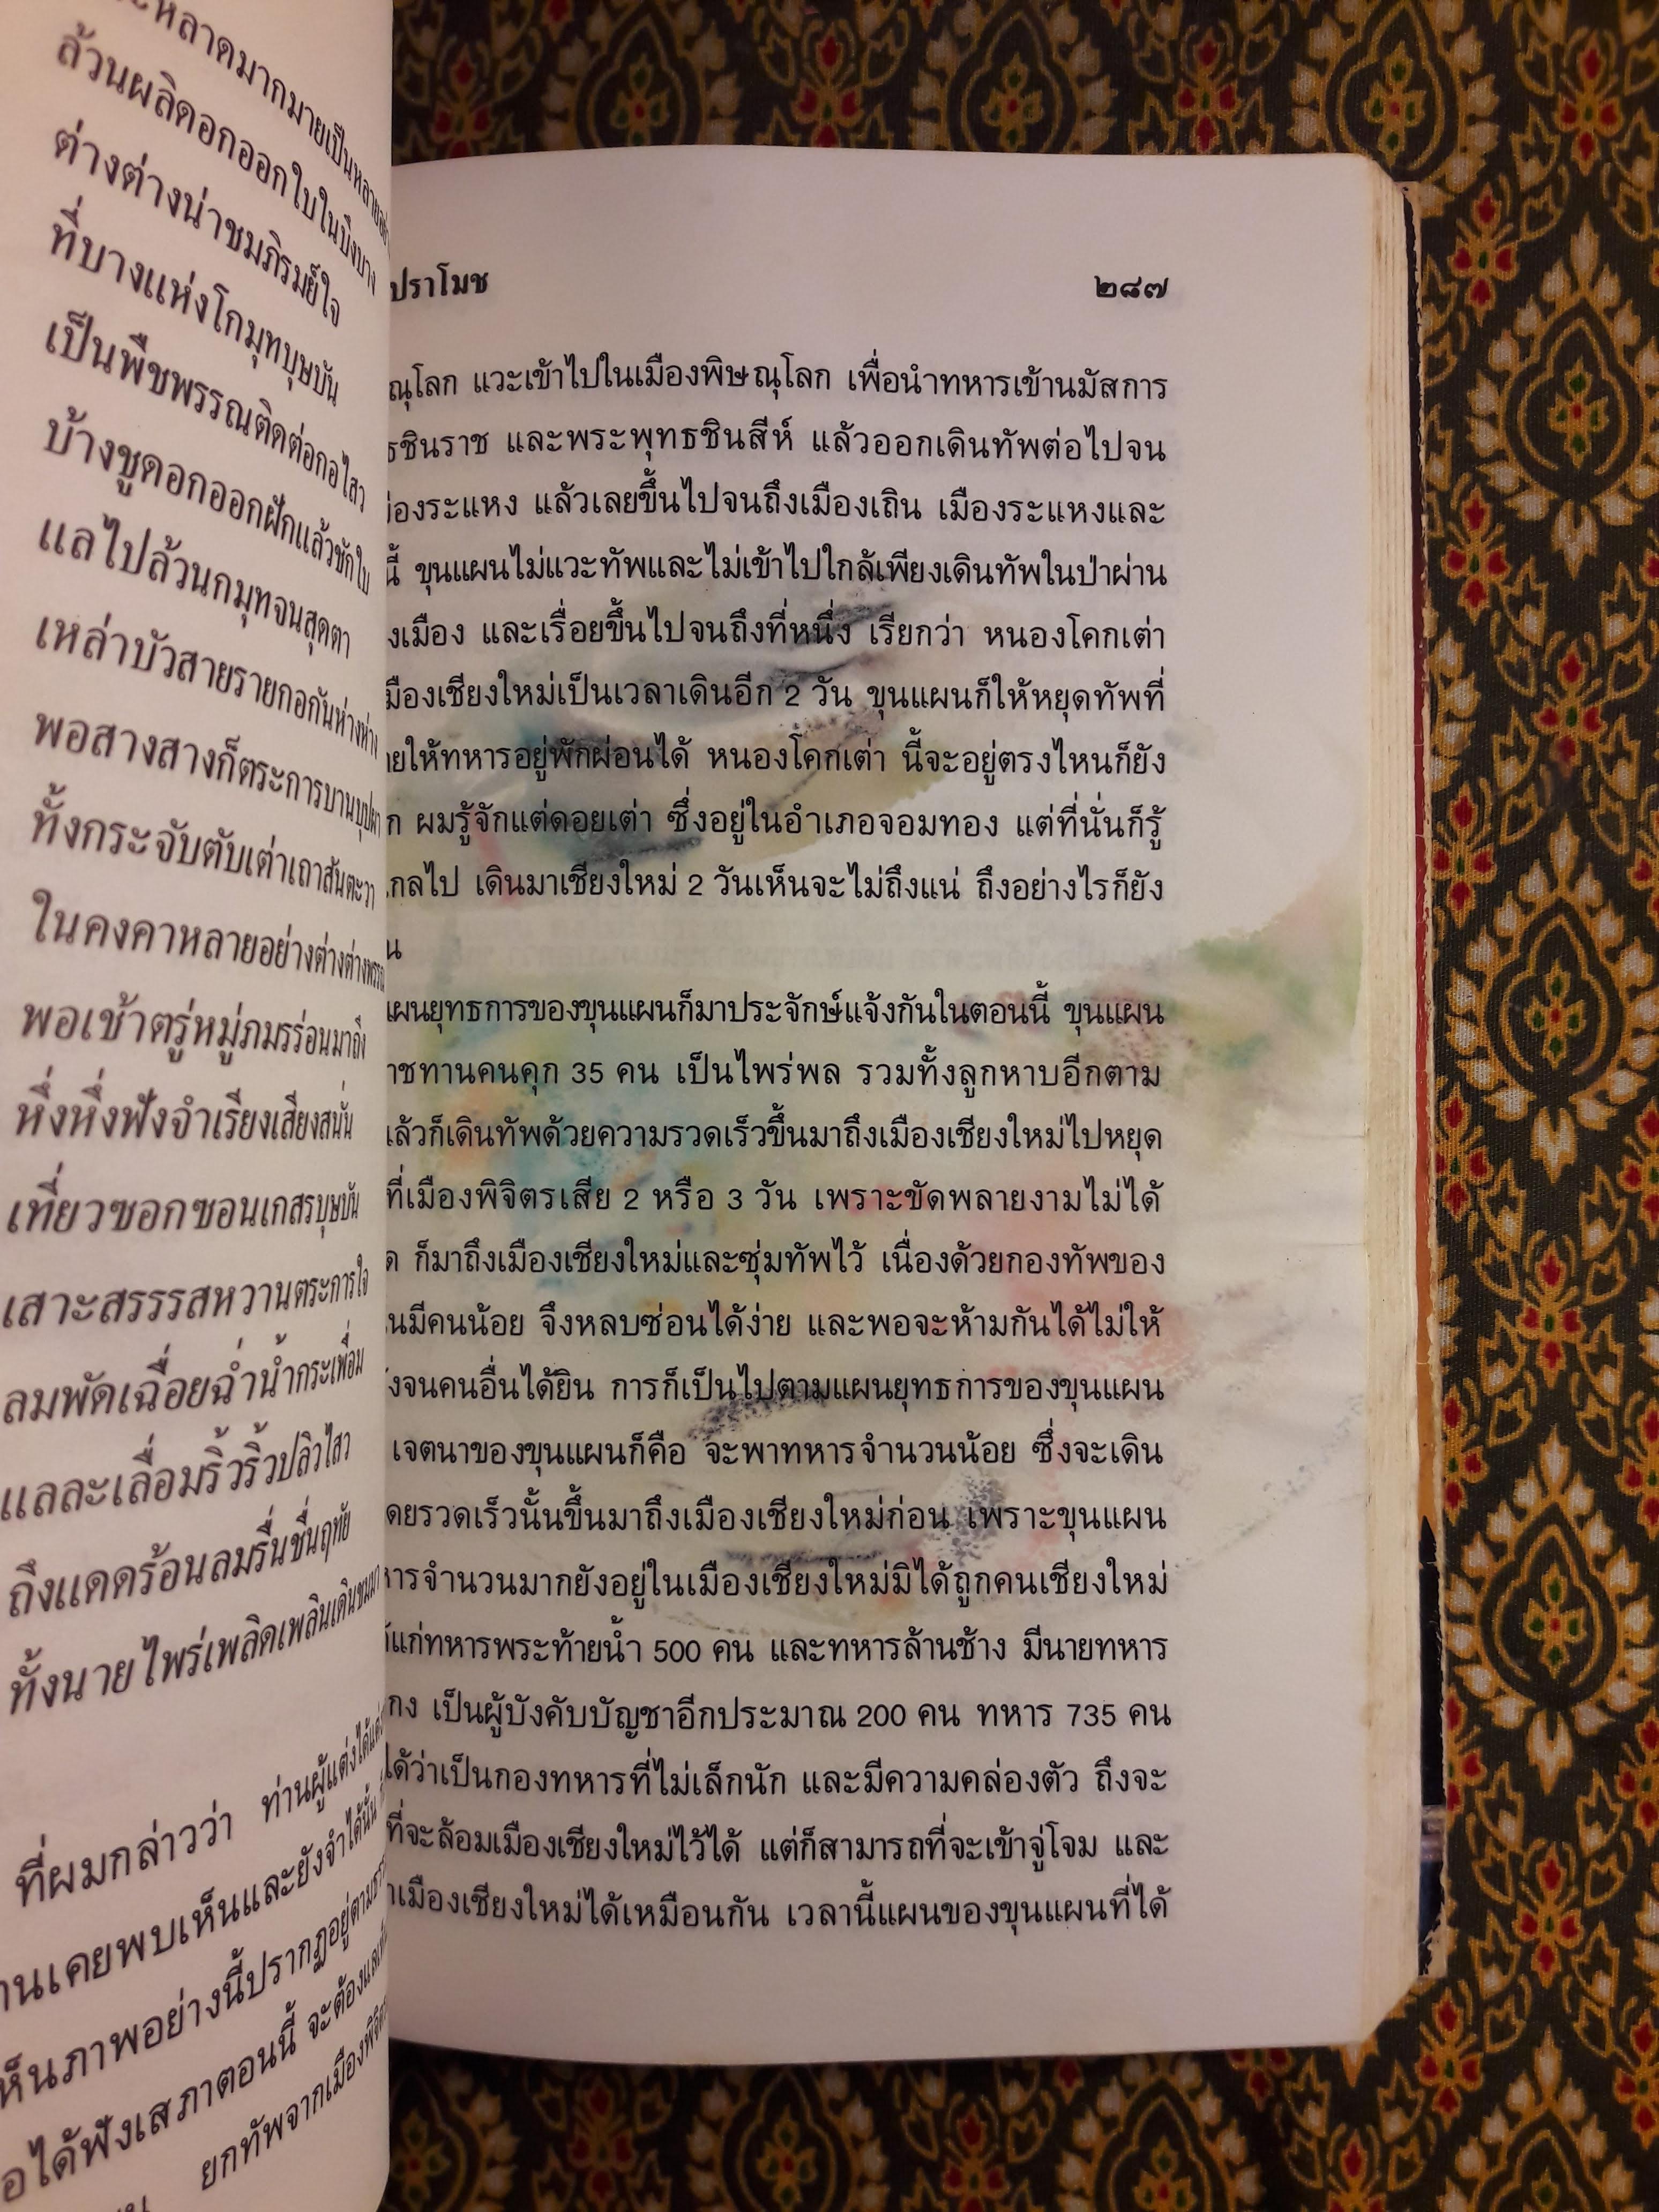 หลาดมากมายเป็นหลายอย่าง
ล้วนผลิดอกออกใบในบึงบาง
ต่างต่างน่าชมภิรมย์ใจ
ที่บางแห่งโกมุทบุษบัน
เป็นพืชพรรณติดต่อกอไสว
บ้างชูดอกออกฝักแล้วชักใบ
แลไปล้วนกมุทจนสุดตา
เหล่าบัวสายรายกอกันห่างห่าง
พอสางสางก็ตระการบานบุปผา
ทั้งกระจับตับเต่าเถาสันตะวา
ในคงคาหลายอย่างต่างต่างพรรณ
พอเช้าตรู่หมู่ภมรร่อนมาถึง
หึ่งหึ่งฟังจำเรียงเสียงสนั่น
เที่ยวซอกซอนเกสรบุษบัน
เสาะสรรรสหวานตระการใจ
ลมพัดเฉื่อยฉ่ำน้ำกระเพื่อม
แลละเลื่อมริ้วริ้วปลิวไสว
ถึงแดดร้อนลมรื่นชื่นฤทัย
ทั้งนายไพร่เพลิดเพลินเดินชมมา
ที่ผมกล่าวว่า ท่านผู้แต่งได้แต่ง
านเคยพบเห็นและยังจำได้นั้น
ห็นภาพอย่างนี้ปรากฏอยู่ตาม
อได้ฟังเสภาตอนนี้ จะต้องแล
ยกทัพจากเมืองพิจิตร
ปราโมช
๒๘๗
ณุโลก แวะเข้าไปในเมืองพิษณุโลก เพื่อนำทหารเข้านมัสการ
ธชินราช และพระพุทธชินสีห์ แล้วออกเดินทัพต่อไปจน
องระแหง แล้วเลยขึ้นไปจนถึงเมืองเถิน เมืองระแหงและ
นี้ ขุนแผนไม่แวะทัพและไม่เข้าไปใกล้เพียงเดินทัพในป่าผ่าน
งเมือง และเรื่อยขึ้นไปจนถึงที่หนึ่ง เรียกว่า หนองโคกเต่า
มืองเชียงใหม่เป็นเวลาเดินอีก 2 วัน ขุนแผนก็ให้หยุดทัพที่
ยให้ทหารอยู่พักผ่อนได้ หนองโคกเต่า นี้จะอยู่ตรงไหนก็ยัง
ก ผมรู้จักแต่ดอยเต่า ซึ่งอยู่ในอำเภอจอมทอง แต่ที่นั่นก็รู้
กลไป เดินมาเชียงใหม่ 2 วันเห็นจะไม่ถึงแน่ ถึงอย่างไรก็ยัง
น
แผนยุทธการของขุนแผนก็มาประจักษ์แจ้งกันในตอนนี้ ขุนแผน
าชทานคนคุก 35 คน เป็นไพร่พล รวมทั้งลูกหาบอีกตาม
ล้วก็เดินทัพด้วยความรวดเร็วขึ้นมาถึงเมืองเชียงใหม่ไปหยุด
ที่เมืองพิจิตรเสีย 2 หรือ 3 วัน เพราะขัดพลายงามไม่ได้
ด ก็มาถึงเมืองเชียงใหม่และซุ่มทัพไว้ เนื่องด้วยกองทัพของ
นมีคนน้อย จึงหลบซ่อนได้ง่าย และพอจะห้ามกันได้ไม่ให้
งจนคนอื่นได้ยิน การก็เป็นไปตามแผนยุทธการของขุนแผน
เจตนาของขุนแผนก็คือ จะพาทหารจำนวนน้อย ซึ่งจะเดิน
ดยรวดเร็วนั้นขึ้นมาถึงเมืองเชียงใหม่ก่อน เพราะขุนแผน
ารจำนวนมากยังอยู่ในเมืองเชียงใหม่มิได้ถูกคนเชียงใหม่
แก่ทหารพระท้ายน้ำ 500 คน และทหารล้านช้าง มีนายทหาร
กง เป็นผู้บังคับบัญชาอีกประมาณ 200 คน ทหาร 735 คน
ได้ว่าเป็นกองทหารที่ไม่เล็กนัก และมีความคล่องตัว ถึงจะ
ที่จะล้อมเมืองเชียงใหม่ไว้ได้ แต่ก็สามารถที่จะเข้าจู่โจม และ
าเมืองเชียงใหม่ได้เหมือนกัน เวลานี้แผนของขุนแผนที่ได้